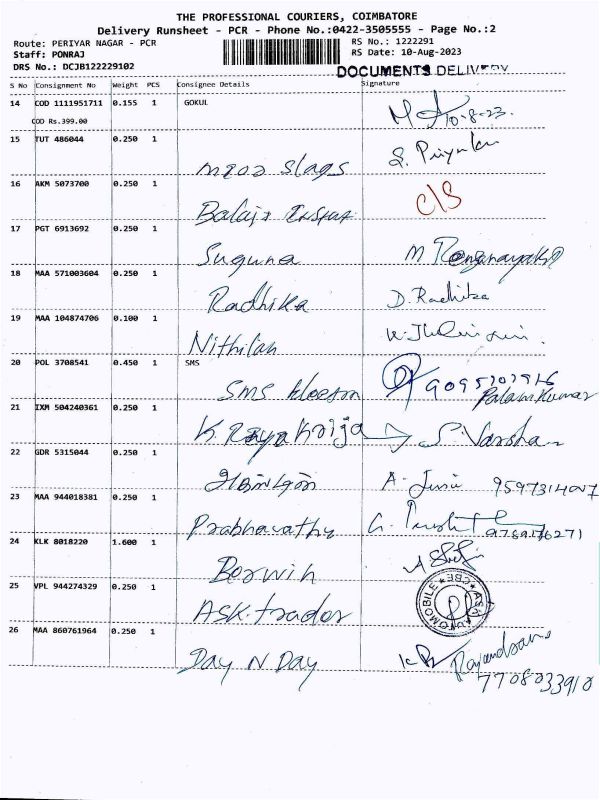 THE PROFESSIONAL COURIERS, COIMBATORE
Delivery Runsheet - PCR - Phone No.:0422-3505555 - Page No.:2
Route: PERIYAR NAGAR - PCR
RS No.: 1222291
Staff: PONRAJ
RS Date: 10-Aug-2023
DRS No.: DCJB122229102
DOCUMENTS DELIVERY
S No Consignment No Weight PCS Consignee Details Signature
14 COD 1111951711 0.155 1 GOKUL
COD Rs.399.00
10-8-23
15 TUT 486044 0.250 1
S. Priyanka
16 AKM 5073700 0.250 1
Balaji
C/S
17 PGT 6913692 0.250 1
Suguna M Renganayaki
18 MAA 571003604 0.250 1
Radhika D. Radhika
19 MAA 104874706 0.100 1
Nithilan
20 POL 3708541 0.450 1 SMS
SMS
Palanikumar
21 IXM 504240361 0.250 1
K. S. Varsha
22 GDR 5315044 0.250 1
A.
23 MAA 944018381 0.250 1
Prabhavathy G.
24 KLK 8018220 1.600 1
Berwin
25 VPL 944274329 0.250 1
ASK. trador
ASK AUTOMOBILE ★ CBE ★
26 MAA 860761964 0.250 1
Day N Day
7708033910